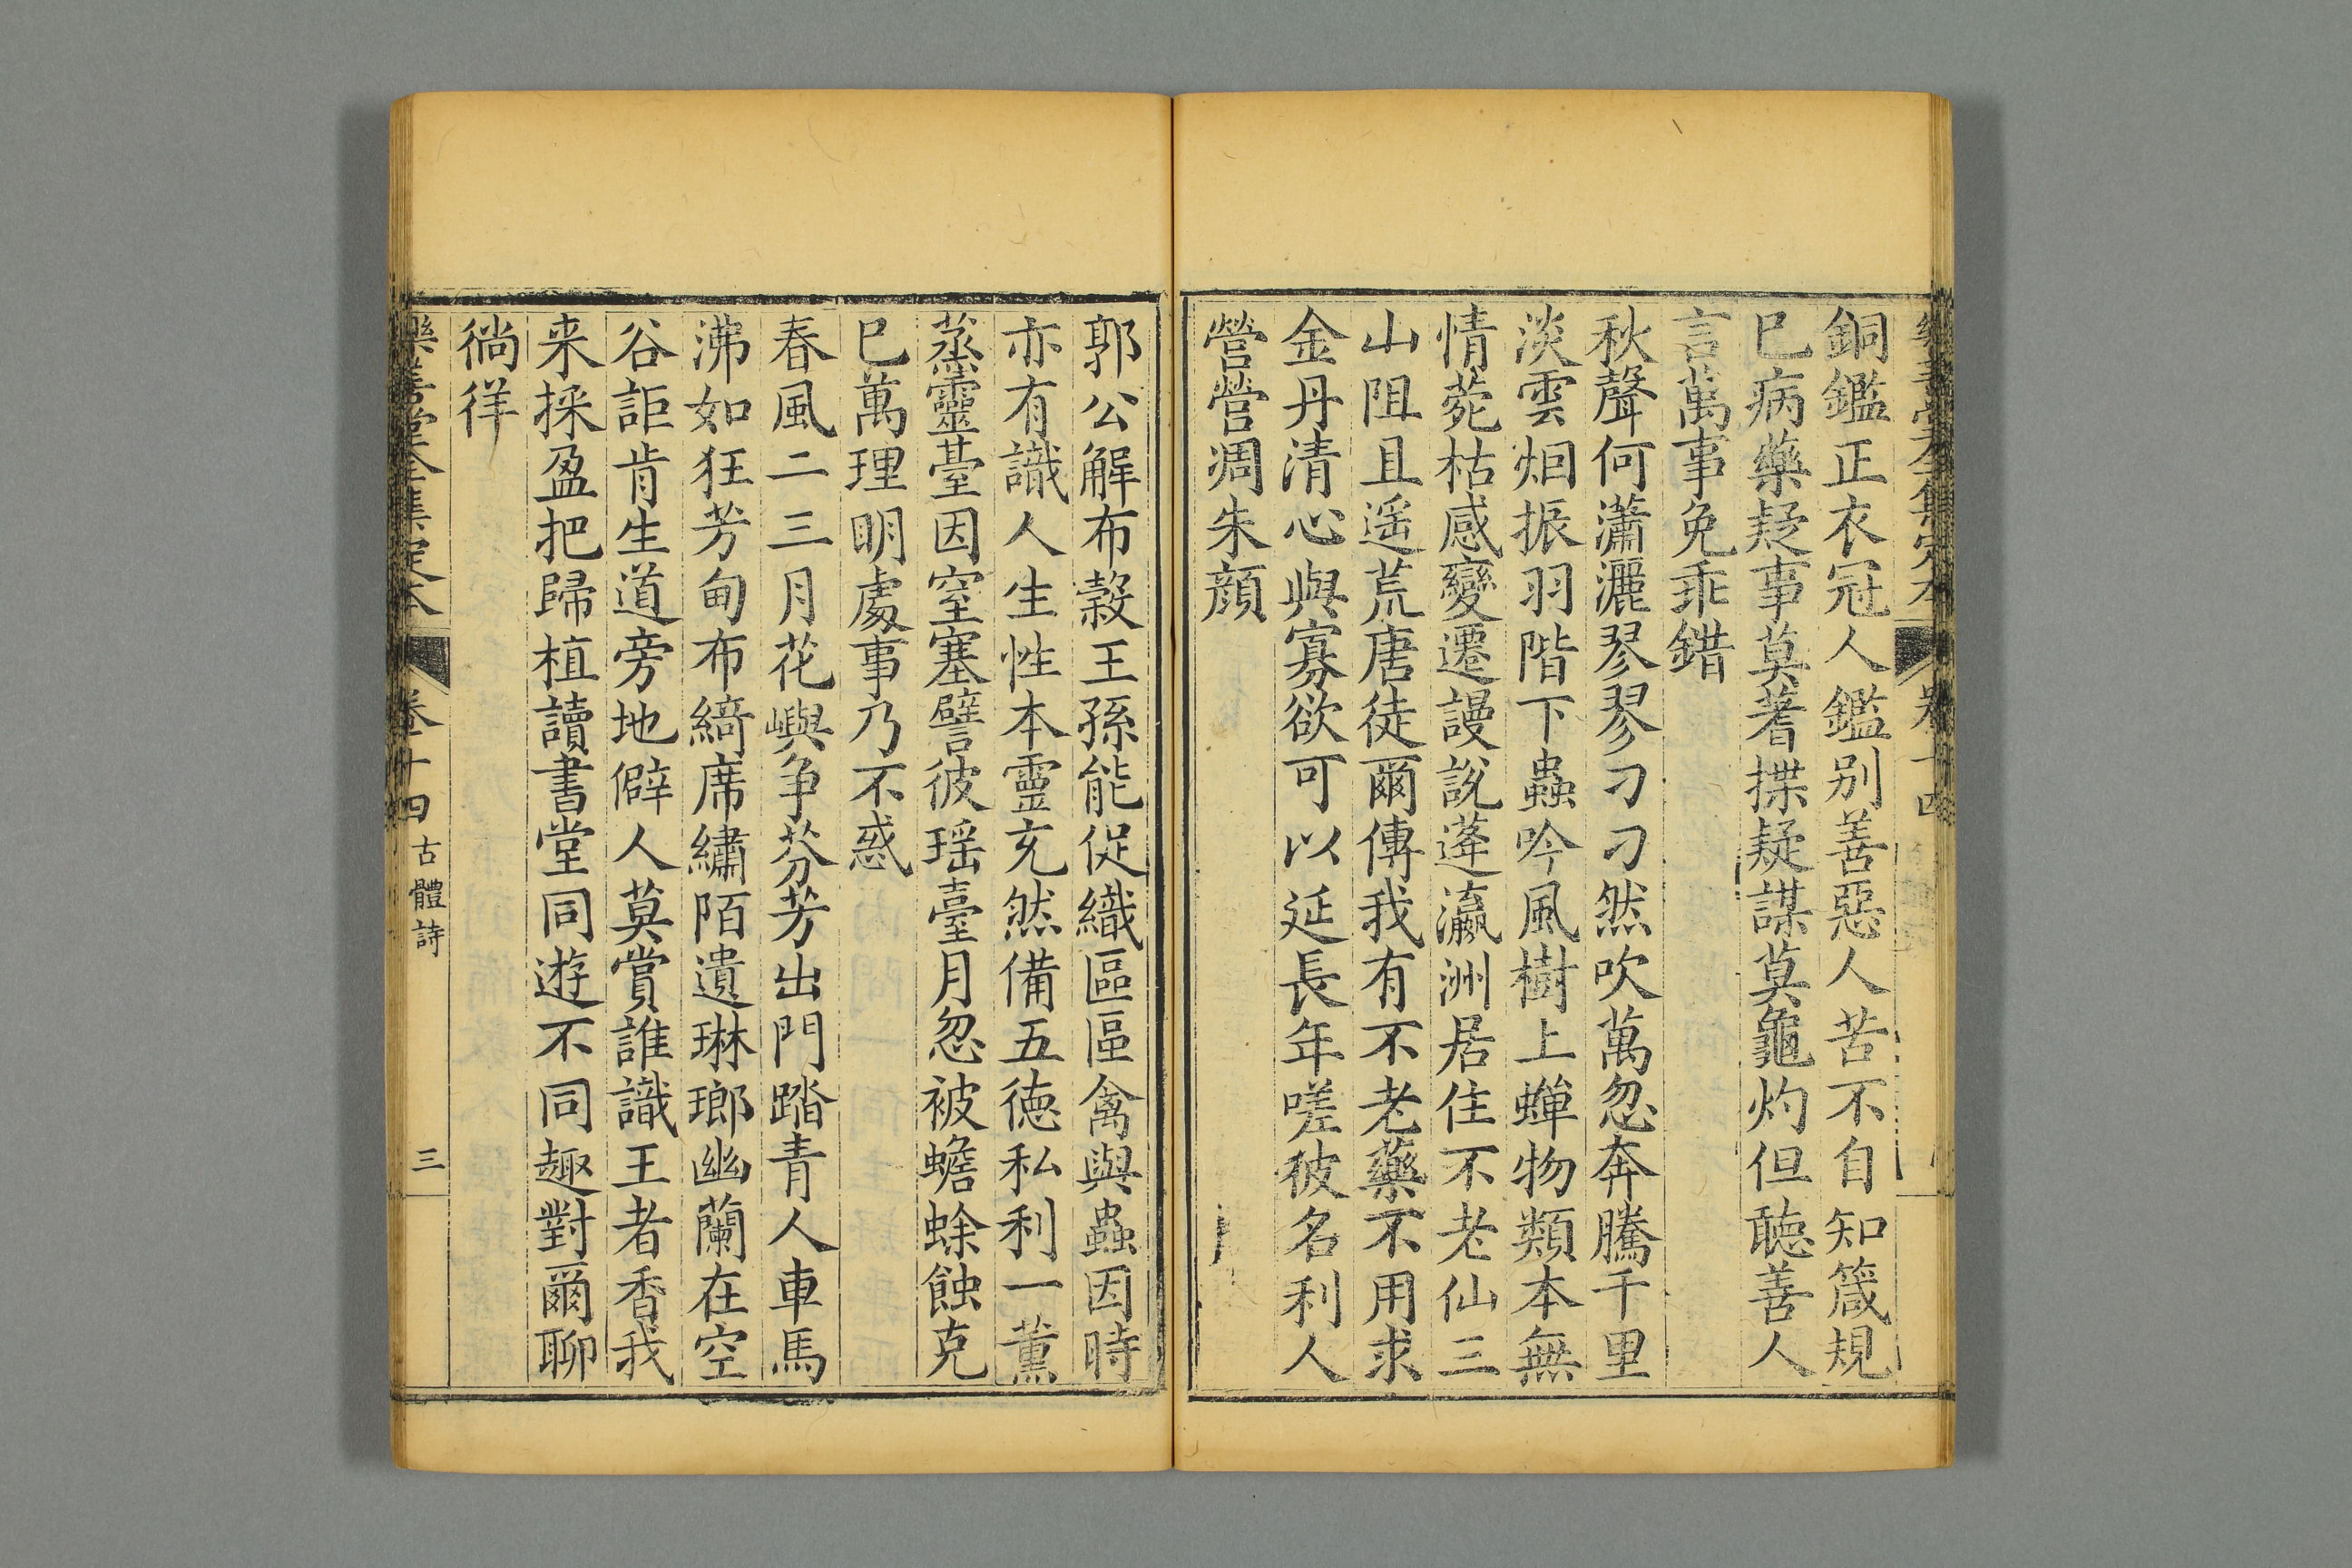 樂善堂全集定本 卷十四
銅鑑正衣冠人鑑别善惡人苦不自知箴規
已病藥疑事莫蓍揲疑謀莫龜灼但聽善人
言萬事免乖錯
秋聲何瀟灑翏翏刁刁然吹萬忽奔騰千里
淡雲烟振羽階下蟲吟風樹上蟬物類本無
情菀枯感變遷謾說蓬瀛洲居住不老仙三
山阻且遥荒唐徒爾傳我有不老藥不用求
金丹清心與寡欲可以延長年嗟彼名利人
營營凋朱顔
郭公解布穀王孫能促織區區禽與蟲因時
亦有識人生性本靈充然備五徳私利一薰
蒸靈臺因窒塞譬彼瑶臺月忽被蟾蜍蝕克
已萬理明處事乃不惑
春風二三月花嶼争芬芳出門踏青人車馬
沸如狂芳甸布綺席繡陌遺琳瑯幽蘭在空
谷詎肯生道旁地僻人莫賞誰識王者香我
来採盈把歸植讀書堂同遊不同趣對爾聊
徜徉
樂善堂全集定本 卷十四 古體詩 三